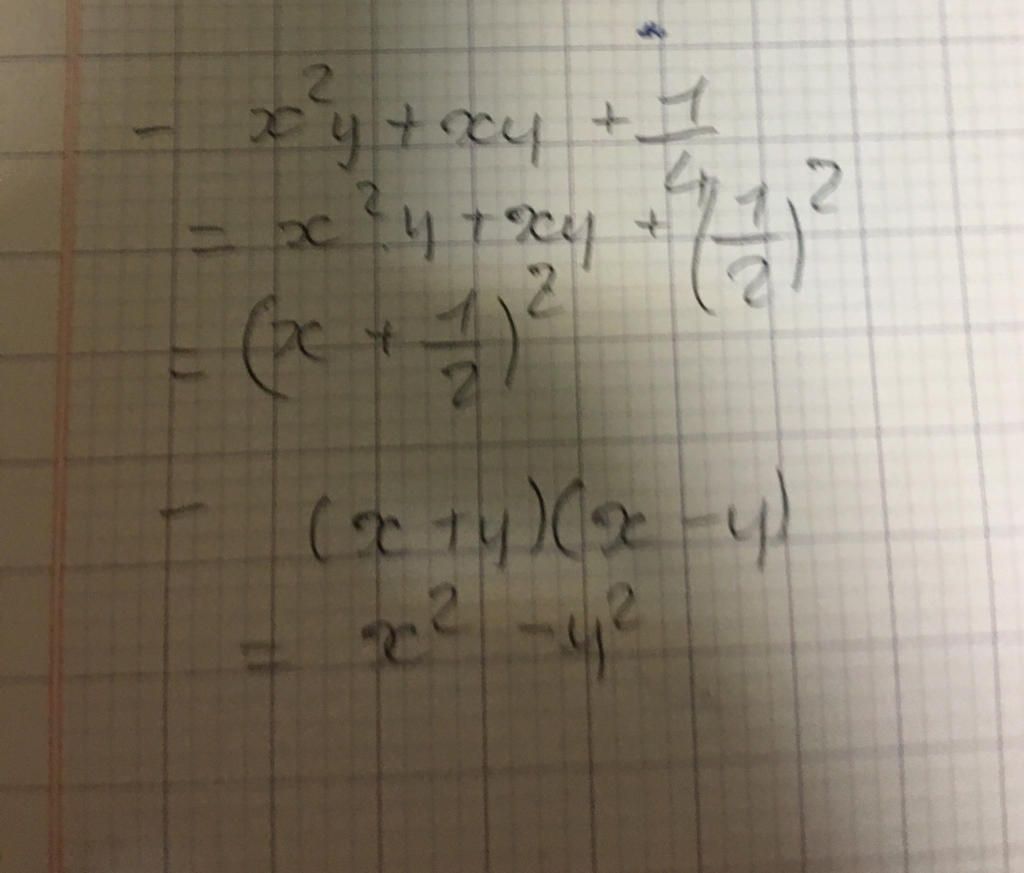 - x²y + xy + 1/4
= x².y + xy + (1/2)²
= (x + 1/2)²
- (x + y)(x - y)
= x² - y²